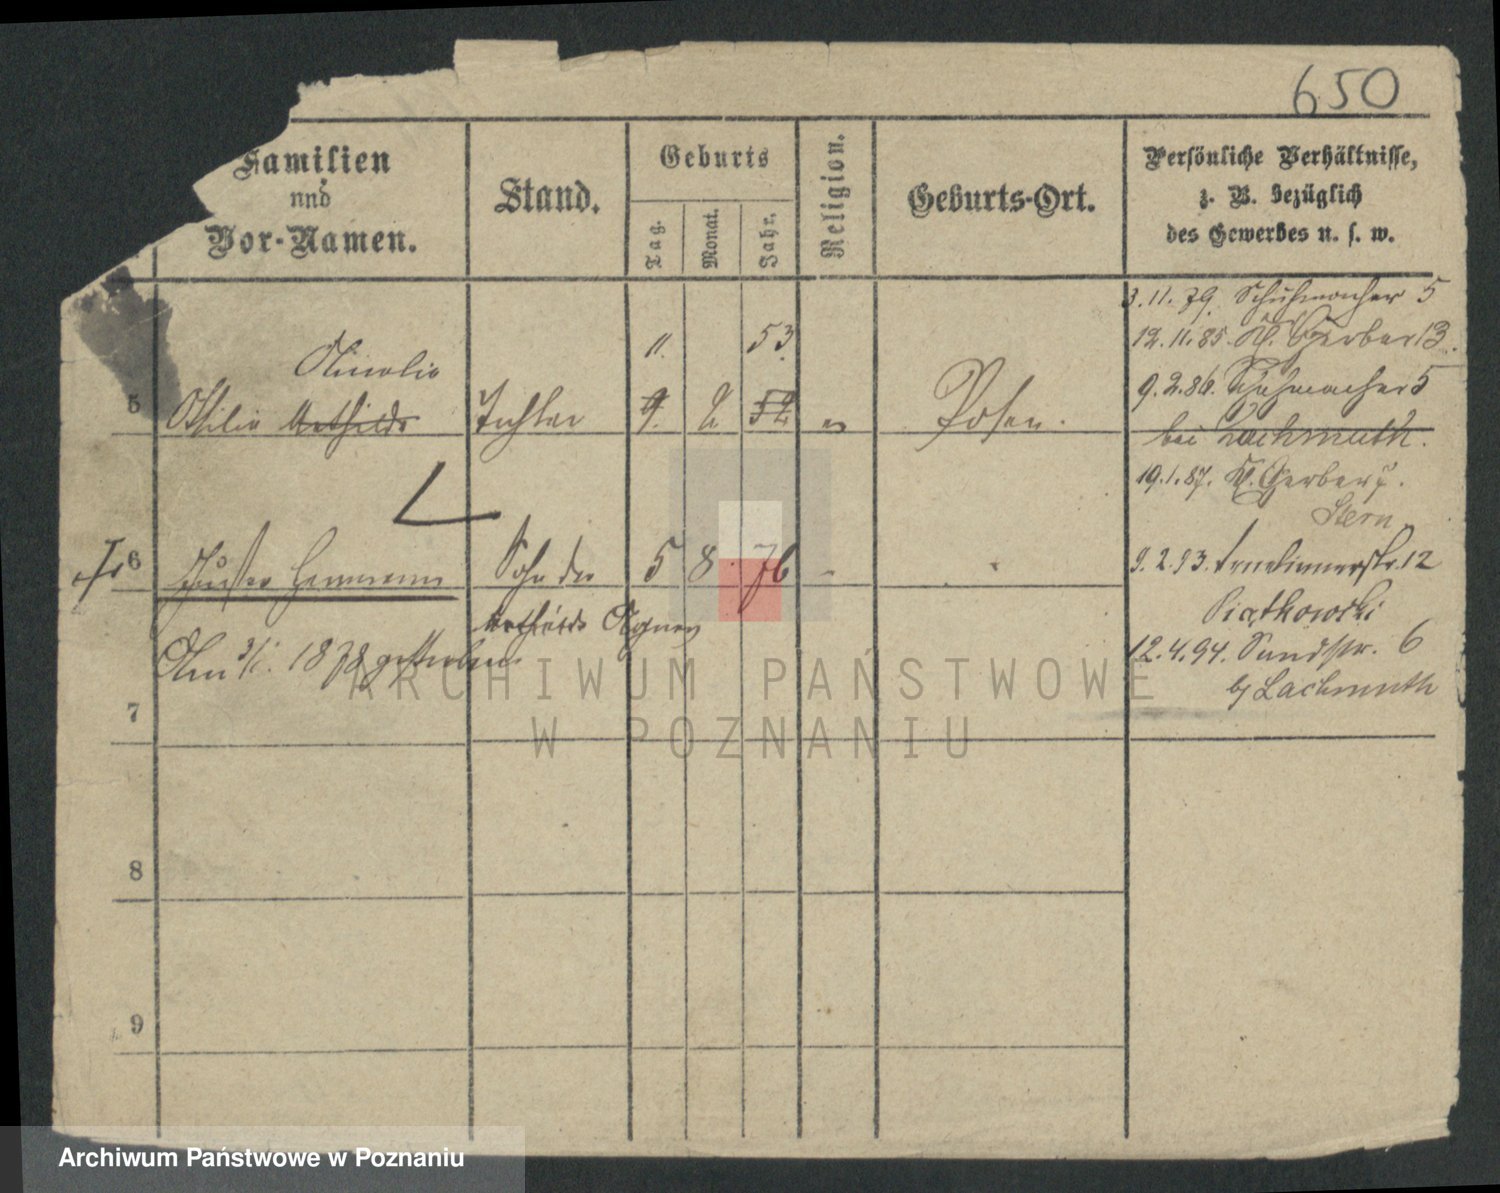 650
Familien
und
Vor-Namen.
Stand.
Geburts
Tag.
Monat.
Jahr.
Religion.
Geburts-Ort.
Persönliche Verhältnisse,
z. B. bezüglich
des Gewerbes u. s. w.
3.11.79. Schuhmacher 5
12.11.85. Kl. Gerber 13.
9.2.86. Schuhmacher 5
bei Lachmuth.
19.1.87. Kl. Gerber 7.
Stern
9.2.93. 12
Piątkowski
12.4.94. Sandstr. 6
bj Lachmuth
11. 53.
5 Ottilie Mathilde Tochter 9. 2 52 " Posen.
6 Hermann Sohn der 5 8. 76
Mathilde Agnes
Am 3/1. 1878 gestorben.
7
8
9
ARCHIWUM PAŃSTWOWE
W POZNANIU
Archiwum Państwowe w Poznaniu